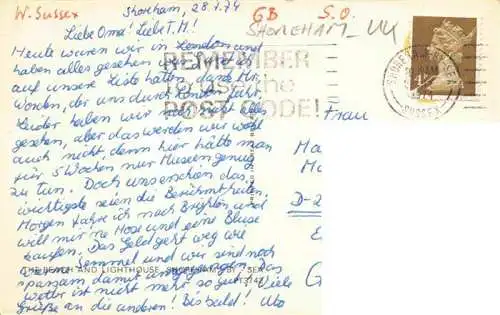 W. Sussex
GB S.O.
SHOREHAM, UK
Shoreham, 28.7.79
Liebe Oma! Liebe T. M.!
Heute waren wir in London und
haben alles gesehen was wir
auf unsere Liste hatten, dank Mr.
Worden, der uns durch London fuhr.
Leider haben wir noch nicht alles
gesehen, aber das werden wir wohl
auch nicht, denn hier hätte man
für 5 Wochen nur Museen genug
zu tun. Doch uns erschien das
wichtigste seien die Berühmtheiten.
Morgen fahre ich nach Brighton und
will mir ne Hose und eine Bluse
kaufen. Das Geld geht weg wie
Semmel und wir sind noch
sparsam damit umgegangen. Das
Wetter ist nicht mehr so gut. Viele
Grüße an die anderen! Bis bald! Ubo
REMEMBER
to use the
POST CODE!
SUSSEX
Frau
Ma
Ma
D-2
E
G
THE BEACH AND LIGHTHOUSE, SHOREHAM-BY-SEA